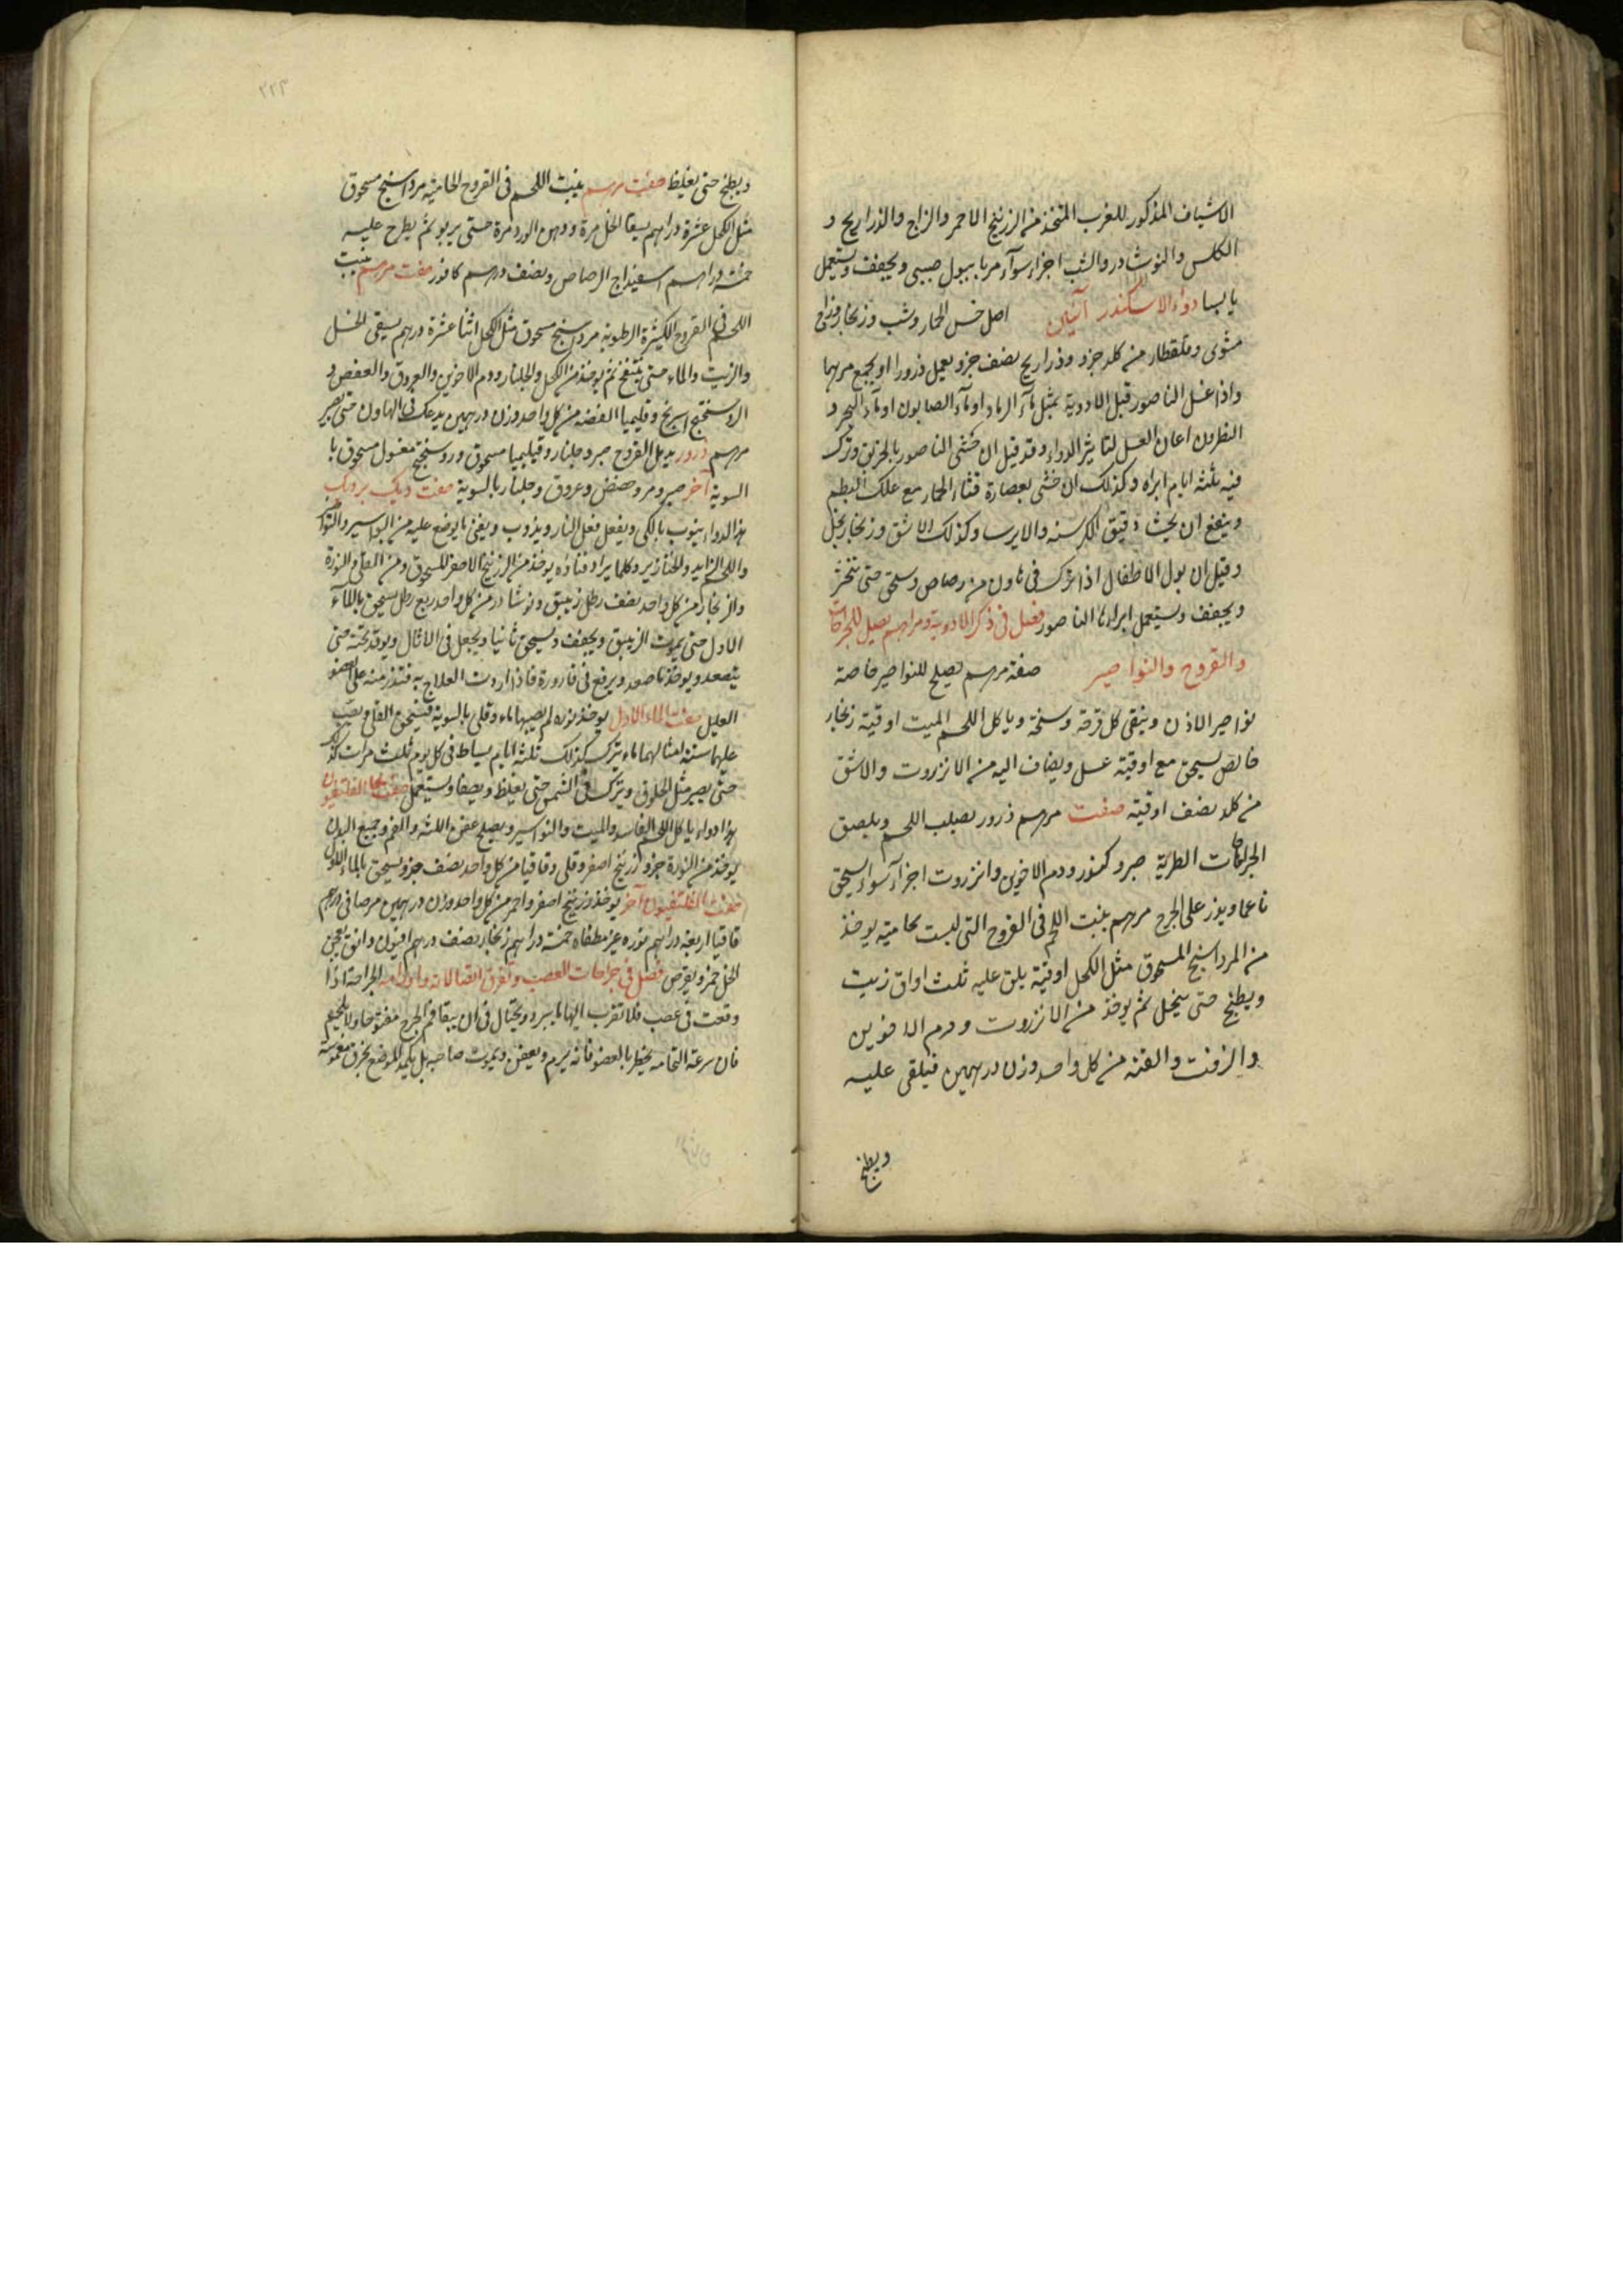 الاشياف المذكور للغرب المتخذ من الزرنيخ الاحمر والزاج والذراريح و
الكلس والنوشادر والشب اجزاء سوآء مربا ببول صبيى ويجفف ويستعمل
يابسا دوآء الاسكندر آنيين اصل خس الحمار وشب وزنجار وزاج
مشوى وقلقطار من كل جزو وذراريح نصف جزو يعمل ذرورا او يجمع مرهما
واذا غسل الناصور قبل الادوية بمثل مآء الرماد او مآء الصابون او مآء البحر و
النطرون اعان الغسل لتاثير الدواء وقد قيل ان حشى الناصور بالخربق وترك
فيه ثلثه ايام ابراه وكذلك ان حشى بعصارة قثاء الحمار مع علك البطم
وينفع ان يحشا دقيق الكرسنه والايرسا وكذلك الاشق وزنجار بخل
وقيل ان بول الاطفال اذا ترك فى هاون من رصاص وسحق حتى يتخثر
ويجفف ويستعمل ابراء الناصور فصل فى ذكر الادوية ومراهم يصلح للجراحات
والقروح والنواصير صفة مرهم يصلح للنواصير خاصة
نواصير الاذن وينقى كل قرحة وسخة وياكل اللحم الميت اوقية زنجار
خالص يسحق مع اوقية عسل ويضاف اليه من الانزروت والاشق
من كل نصف اوقية صفت مرهم ذرور يصلب اللحم ويلصق
الجراحات الطرية صبر وكندر ودم الاخوين وانزروت اجزآء سواء يسحق
ناعما ويذر على الجرح مرهم ينبت اللحم فى القروح التى ليست بحاميه يوخذ
من المرداسنج المسحوق مثل الكحل اوقية يلق عليه ثلث اواق زيت
ويطبخ حتى ينحل ثم يوخذ من الانزروت ودم الاخوين
والزفت والقنه من كل واحد وزن درهمين فيلقى عليه
ويطبخ
٢٢٣
ويطبخ حتى يغلظ صفت مرهم ينبت اللحم فى القروح الحاميه مرداسنج مسحوق
مثل الكحل عشرة دراهم يسقا الخل مرة ودهن الورد مرة حتى يربو ثم يطرح عليه
خمسه دراهم اسفيداج الرصاص ونصف درهم كافور صفت مرهم ينبت
اللحم فى القروح الكثيرة الرطوبه مرداسنج مسحوق مثل الكحل اثنا عشرة درهم يسقى الخل
والزيت والماء حتى ينتفخ ثم يوخذ من الكحل والجلنار ودم الاخوين والعروق والعفص و
الروسختج اسرنج وقليميا الفضه من كل واحد وزن درهمين يدعك فى الهاون حتى يصير
مرهم ذرور يدمل القروح صبر وجلنار وقيليميا مسحوق وروسختج مغسول مسحوق با
السوية آخر صبر ومر وحضض وعروق وجلنار بالسوية صفت ديك برديك
هذا الدواء ينوب بالكى ويفعل فعل النار ويذوب ويفنى ما يوضع عليه من البواسير والنواصير
واللحم الزايد والخنازير وكلما يراد فناؤه يوخذ من الزرنيخ الاصفر المسحوق ومن القلى والنورة
والزنجار من كل واحد نصف رطل زيبق ونوشادر من كل واحد ربع رطل يسحق بالمآء
الاول حتى يموت الزيبق ويجفف ويسحق ثانيا ويجعل فى الاثال ويوقد تحته حتى
يتصعد ويوخذ ما صعد ويرفع فى قارورة فاذا اردت العلاج به فتذر منه على العضو
العليل صفت الماء الاول يوخذ نوره لم يصبها ماء وقلى بالسوية فيسحق القلى ويصب
عليها ستة امثالهما ماء يترك كذلك ثلثة ايام يساط فى كل يوم ثلث مرات
حتى يصير مثل الخلوق ويترك فى الشمس حتى يغلظ ويصفا ويستعمل صفت الفلتفيون
هذا دواء ياكل اللحم الفاسد والميت والنواسير ويصلح عفن اللثه والفم وجميع البدن
يوخذ من النورة جزو زرنيخ اصفر وقلى وقاقيا من كل واحد نصف جزو يسحق بالماء الاول
صفت الفلتفيون آخر يوخذ زرنيخ اصفر واحمر من كل واحد وزن درهمين مر صافى درهم
قاقيا اربعة دراهم نوره غير مطفاه خمسة دراهم زنجار نصف درهم افيون دانق يعجن
الخل خمر ويقرص فصل فى جراحات العصب وتفرق اتصالاته واورامه الجراحة اذا
وقعت فى عصب فلا تقرب اليها ما يبرد ويحتال فى ان يبقا فم الجرح مفتوحا ولا يلتحم
فان سرعة التحامه يخطر بالعضو فانه يرم ويعفن ويموت صاحبه بل يكمد الموضع بخرق مغموسة